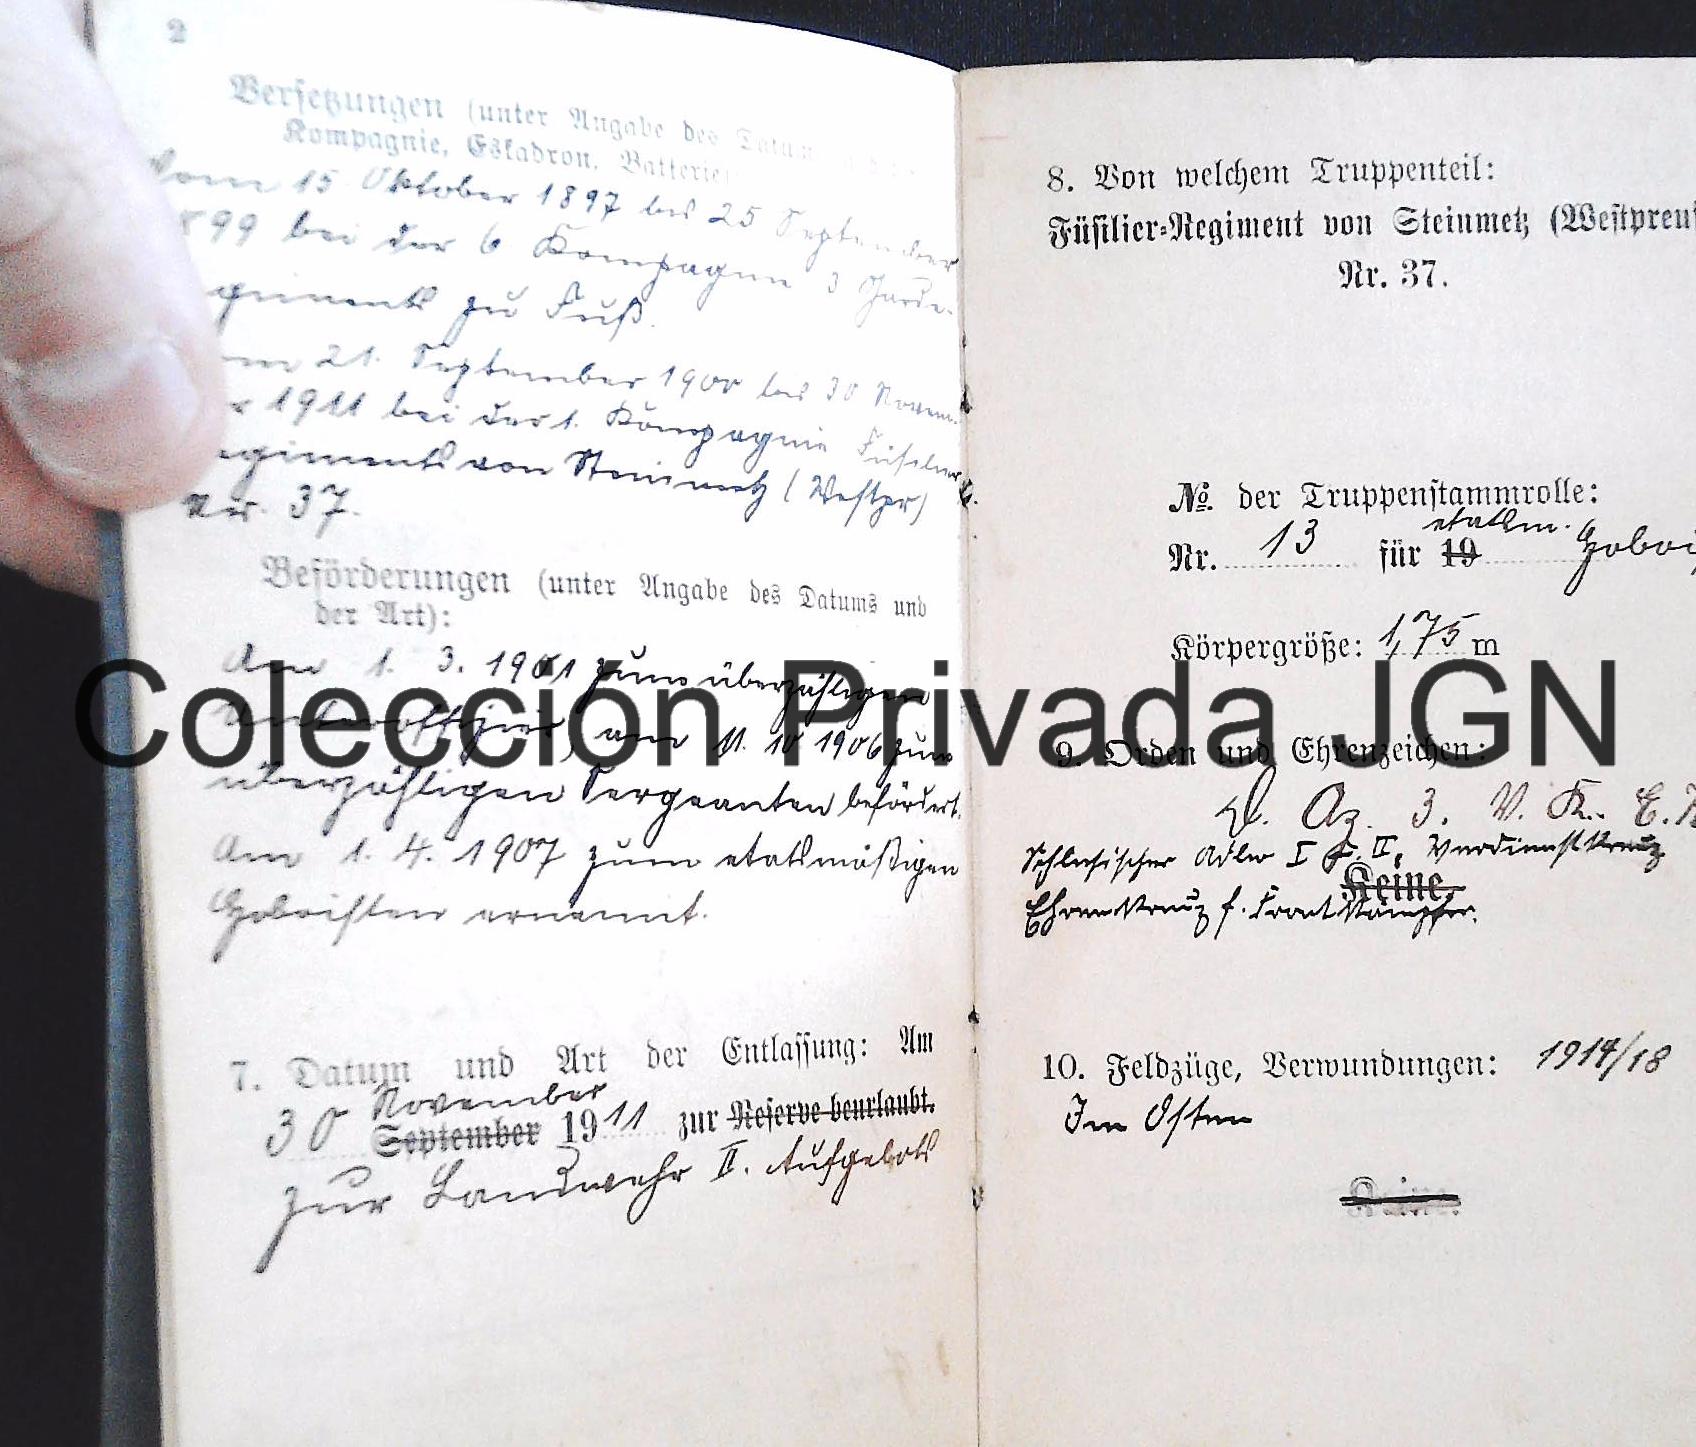 2
Versetzungen (unter Angabe des Datums
Kompagnie, Eskadron, Batterie
Vom 15 Oktober 1897 bis 25 September
1899 bei der 6 Kompagnie 3 Garde-
giments zu Fuß.
21. September 1900 bis 30 Novem-
1911 bei der 1. Kompagnie Füsilier
egiments von Steinmetz (Westpr)
Nr. 37.
Beförderungen (unter Angabe des Datums und
der Art):
Am 1. 3. 1901 zum überzähligen
Unteroffizier, am 11. 10 1906 zum
überzähligen Sergeanten befördert.
Am 1. 4. 1907 zum etatsmäßigen
Hoboisten ernannt.
7. Datum und Art der Entlassung: Am
November
30 September 1911 zur Reserve beurlaubt.
zur Landwehr II. Aufgebots
8. Von welchem Truppenteil:
Füsilier-Regiment von Steinmetz (Westpreuß
Nr. 37.
№. der Truppenstammrolle:
etatsm.
Nr. 13 für 19 Hobois
Körpergröße: 1,75 m
Colección Privada JGN
9. Orden und Ehrenzeichen:
D. Az. 3. V. K. E. K
Schlesischer Adler I u. II, Verdienstkreuz
Keine.
Ehrenkreuz f. Frontkämpfer.
10. Feldzüge, Verwundungen: 1914/18
Im Osten
Keine.